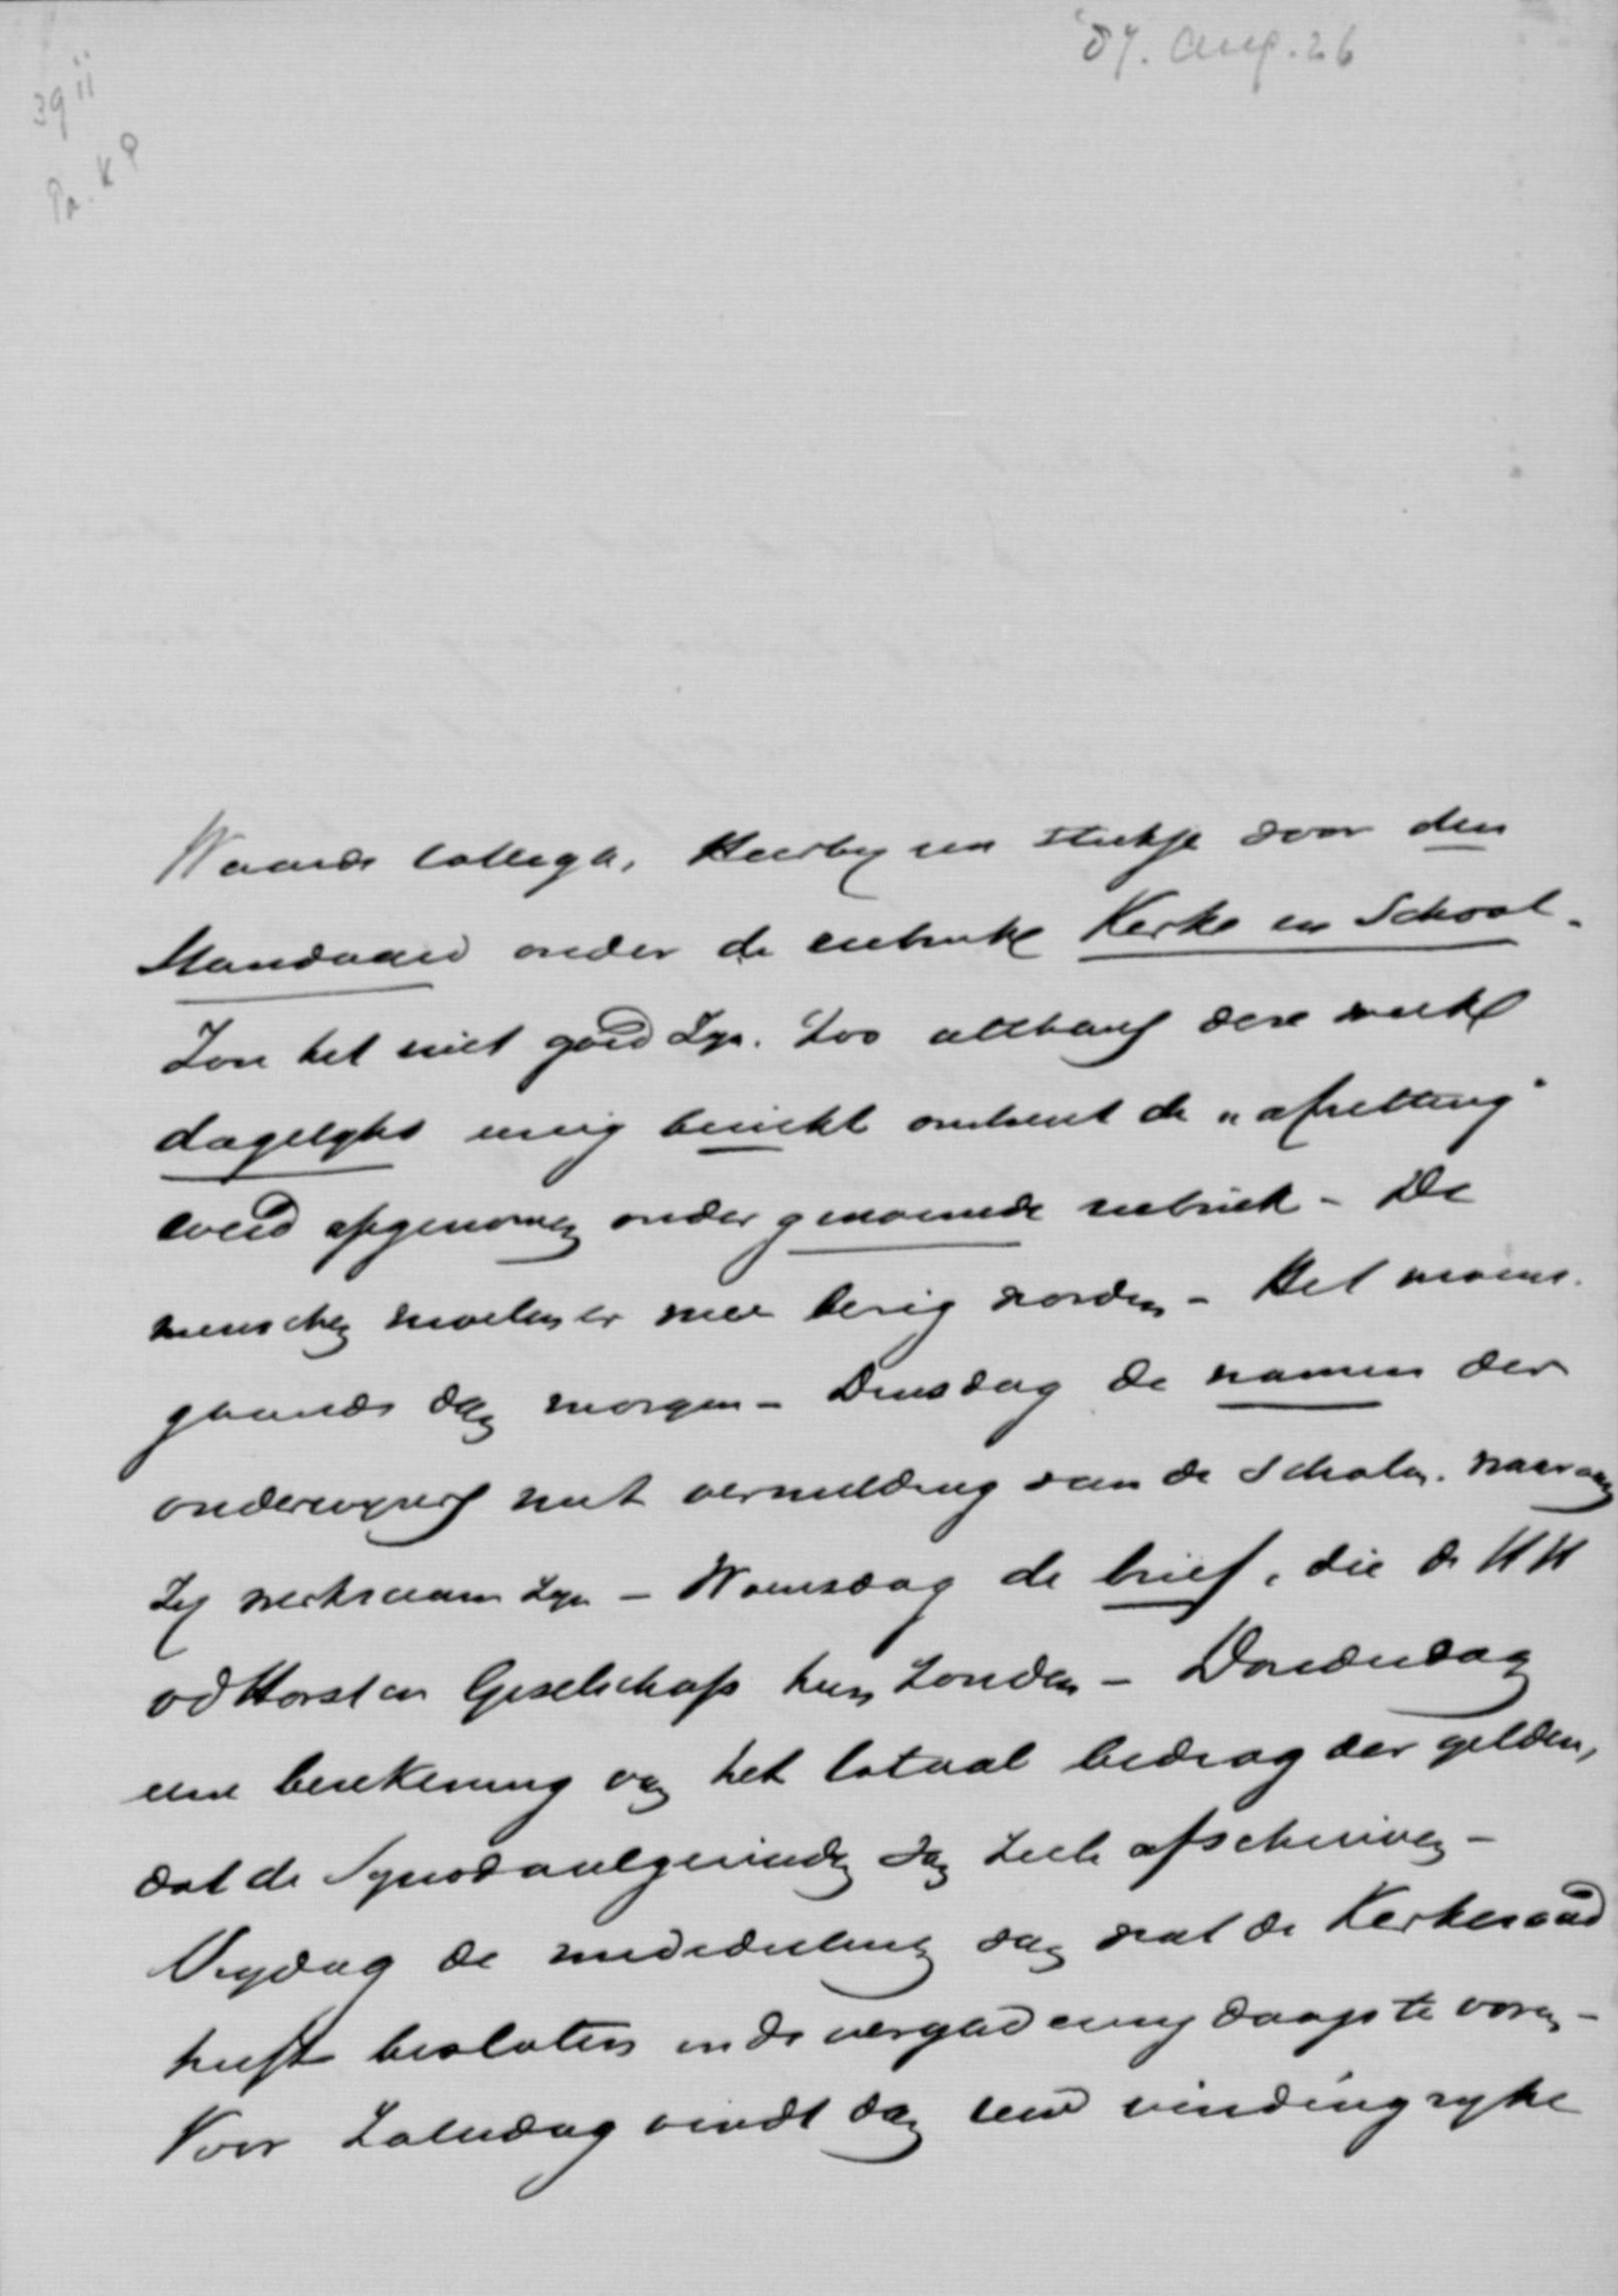 '87. Aug. 26
39 ii
Pa. K 9
Waarde Collega, Hierbij een stukje voor den
Standaard onder de rubriek Kerk en School.
Zou het niet goed zijn. Zoo althans deze week
dagelijks enig bericht omtrent de „afzetting"
werd opgenomen onder genoemde rubriek - De
menschen moeten er mee bezig worden - Het
gaande dan morgen - Dinsdag de namen der
onderwijzers met vermelding van de Scholen. waaraan
zij werkzaam zijn - Woensdag de brief, die de HH
vd Horst en Geselschap hun zonden - Donderdag
eene berekening van het totaal bedrag der gelden,
dat de Synodaalgezinden dan zich afschrijven -
Vrijdag de mededeeling van wat de Kerkeraad
heeft besloten in de vergadering daags te voren -
Voor Zaturdag vindt dan uw vindingrijke